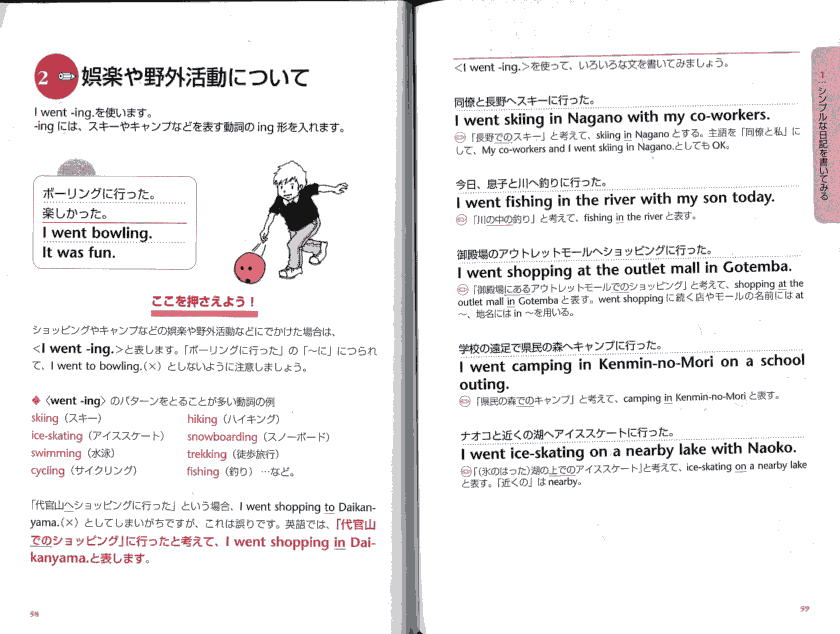 2 娯楽や野外活動について
I went -ing.を使います。
-ing には、スキーやキャンプなどを表す動詞の ing 形を入れます。
ボーリングに行った。
楽しかった。
I went bowling.
It was fun.
ここを押さえよう！
ショッピングやキャンプなどの娯楽や野外活動などにでかけた場合は、
＜I went -ing.＞と表します。「ボーリングに行った」の「〜に」につられ
て、I went to bowling.（×）としないように注意しましょう。
◆〈went -ing〉のパターンをとることが多い動詞の例
skiing（スキー） hiking（ハイキング）
ice-skating（アイススケート） snowboarding（スノーボード）
swimming（水泳） trekking（徒歩旅行）
cycling（サイクリング） fishing（釣り）…など。
「代官山へショッピングに行った」という場合、I went shopping to Daikan-
yama.（×）としてしまいがちですが、これは誤りです。英語では、「代官山
でのショッピング」に行ったと考えて、I went shopping in Dai-
kanyama.と表します。
58
＜I went -ing.＞を使って、いろいろな文を書いてみましょう。
同僚と長野へスキーに行った。
I went skiing in Nagano with my co-workers.
「長野でのスキー」と考えて、skiing in Nagano とする。主語を「同僚と私」に
して、My co-workers and I went skiing in Nagano.としてもOK。
今日、息子と川へ釣りに行った。
I went fishing in the river with my son today.
「川の中の釣り」と考えて、fishing in the river と表す。
御殿場のアウトレットモールへショッピングに行った。
I went shopping at the outlet mall in Gotemba.
「御殿場にあるアウトレットモールでのショッピング」と考えて、shopping at the
outlet mall in Gotemba と表す。went shopping に続く店やモールの名前には at
〜、地名には in 〜を用いる。
学校の遠足で県民の森へキャンプに行った。
I went camping in Kenmin-no-Mori on a school
outing.
「県民の森でのキャンプ」と考えて、camping in Kenmin-no-Mori と表す。
ナオコと近くの湖へアイススケートに行った。
I went ice-skating on a nearby lake with Naoko.
「(氷のはった)湖の上でのアイススケート」と考えて、ice-skating on a nearby lake
と表す。「近くの」は nearby。
1…シンプルな日記を書いてみる
59